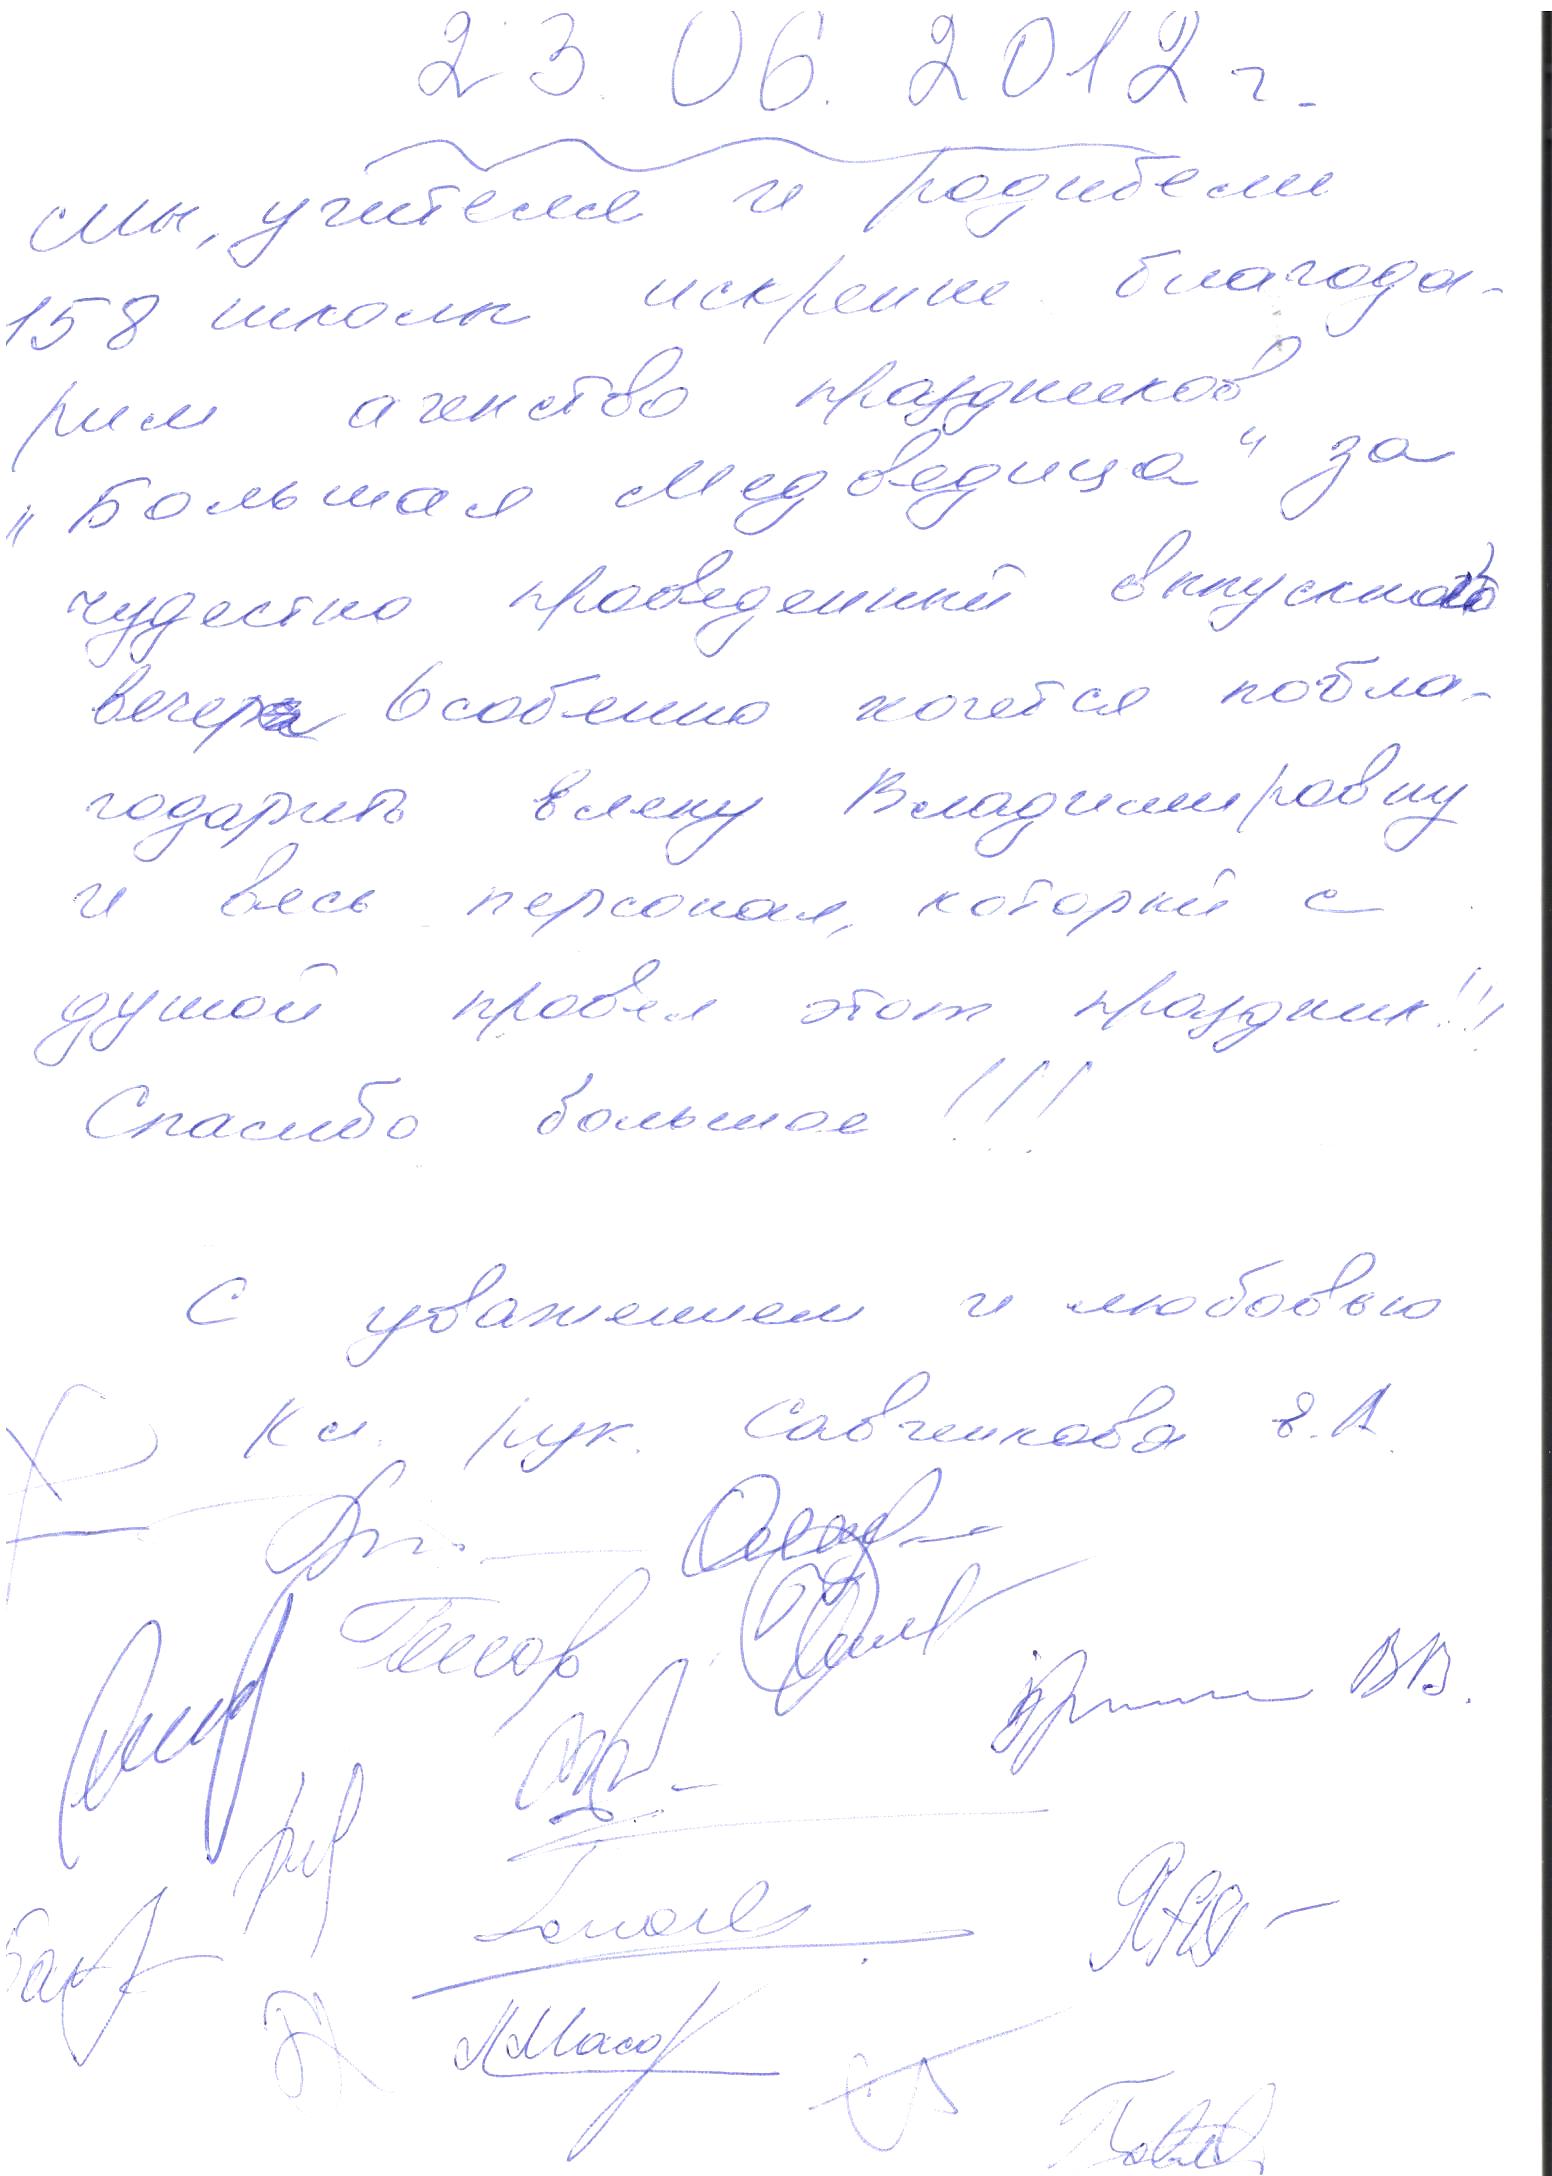 23.06.2012 г.
Мы, учителя и родители
158 школы искренне благода-
рим агенство праздников
„Большая Медведица" за
чудестно проведенный выпускной
вечер. Особенно хочется побла-
годарить Елену Владимировну
и весь персонал, который с
душой провел этот праздник!!!
Спасибо большое!!!
С уважением и любовью
Кл. рук. Савченкова Е.А.
В.В.